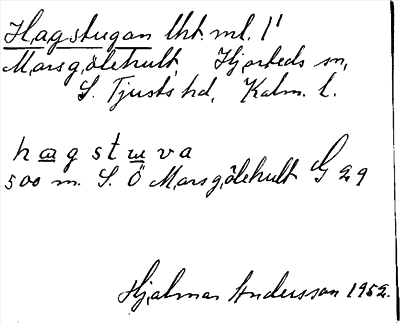 Hagstugan lht. ml. 1'
Marsgölehult Hjorteds sn,
S. Tjusts hd, Kalm. l.
hagstuva
500 m. S. Ö Marsgölehult G 29
Hjalmar Andersson 1952.